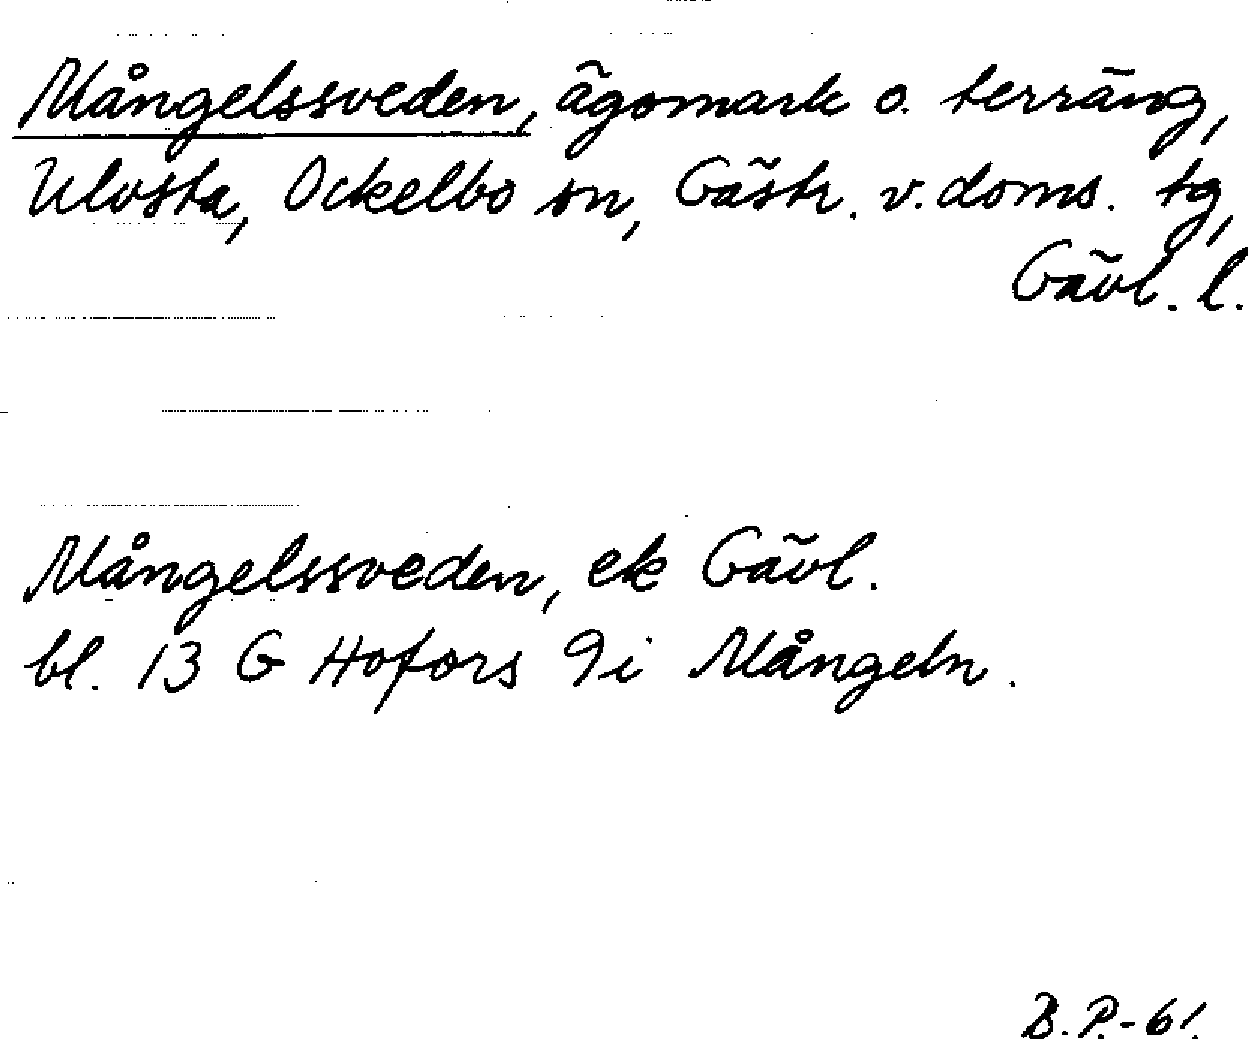 Mångelssveden, ägomark o. terräng,
Ulvsta, Ockelbo sn, Gästr. v. doms. tg,
Gävl. l.
Mångelssveden, ek Gävl.
bl. 13 G Hofors 9i Mångeln.
B.P.-61.